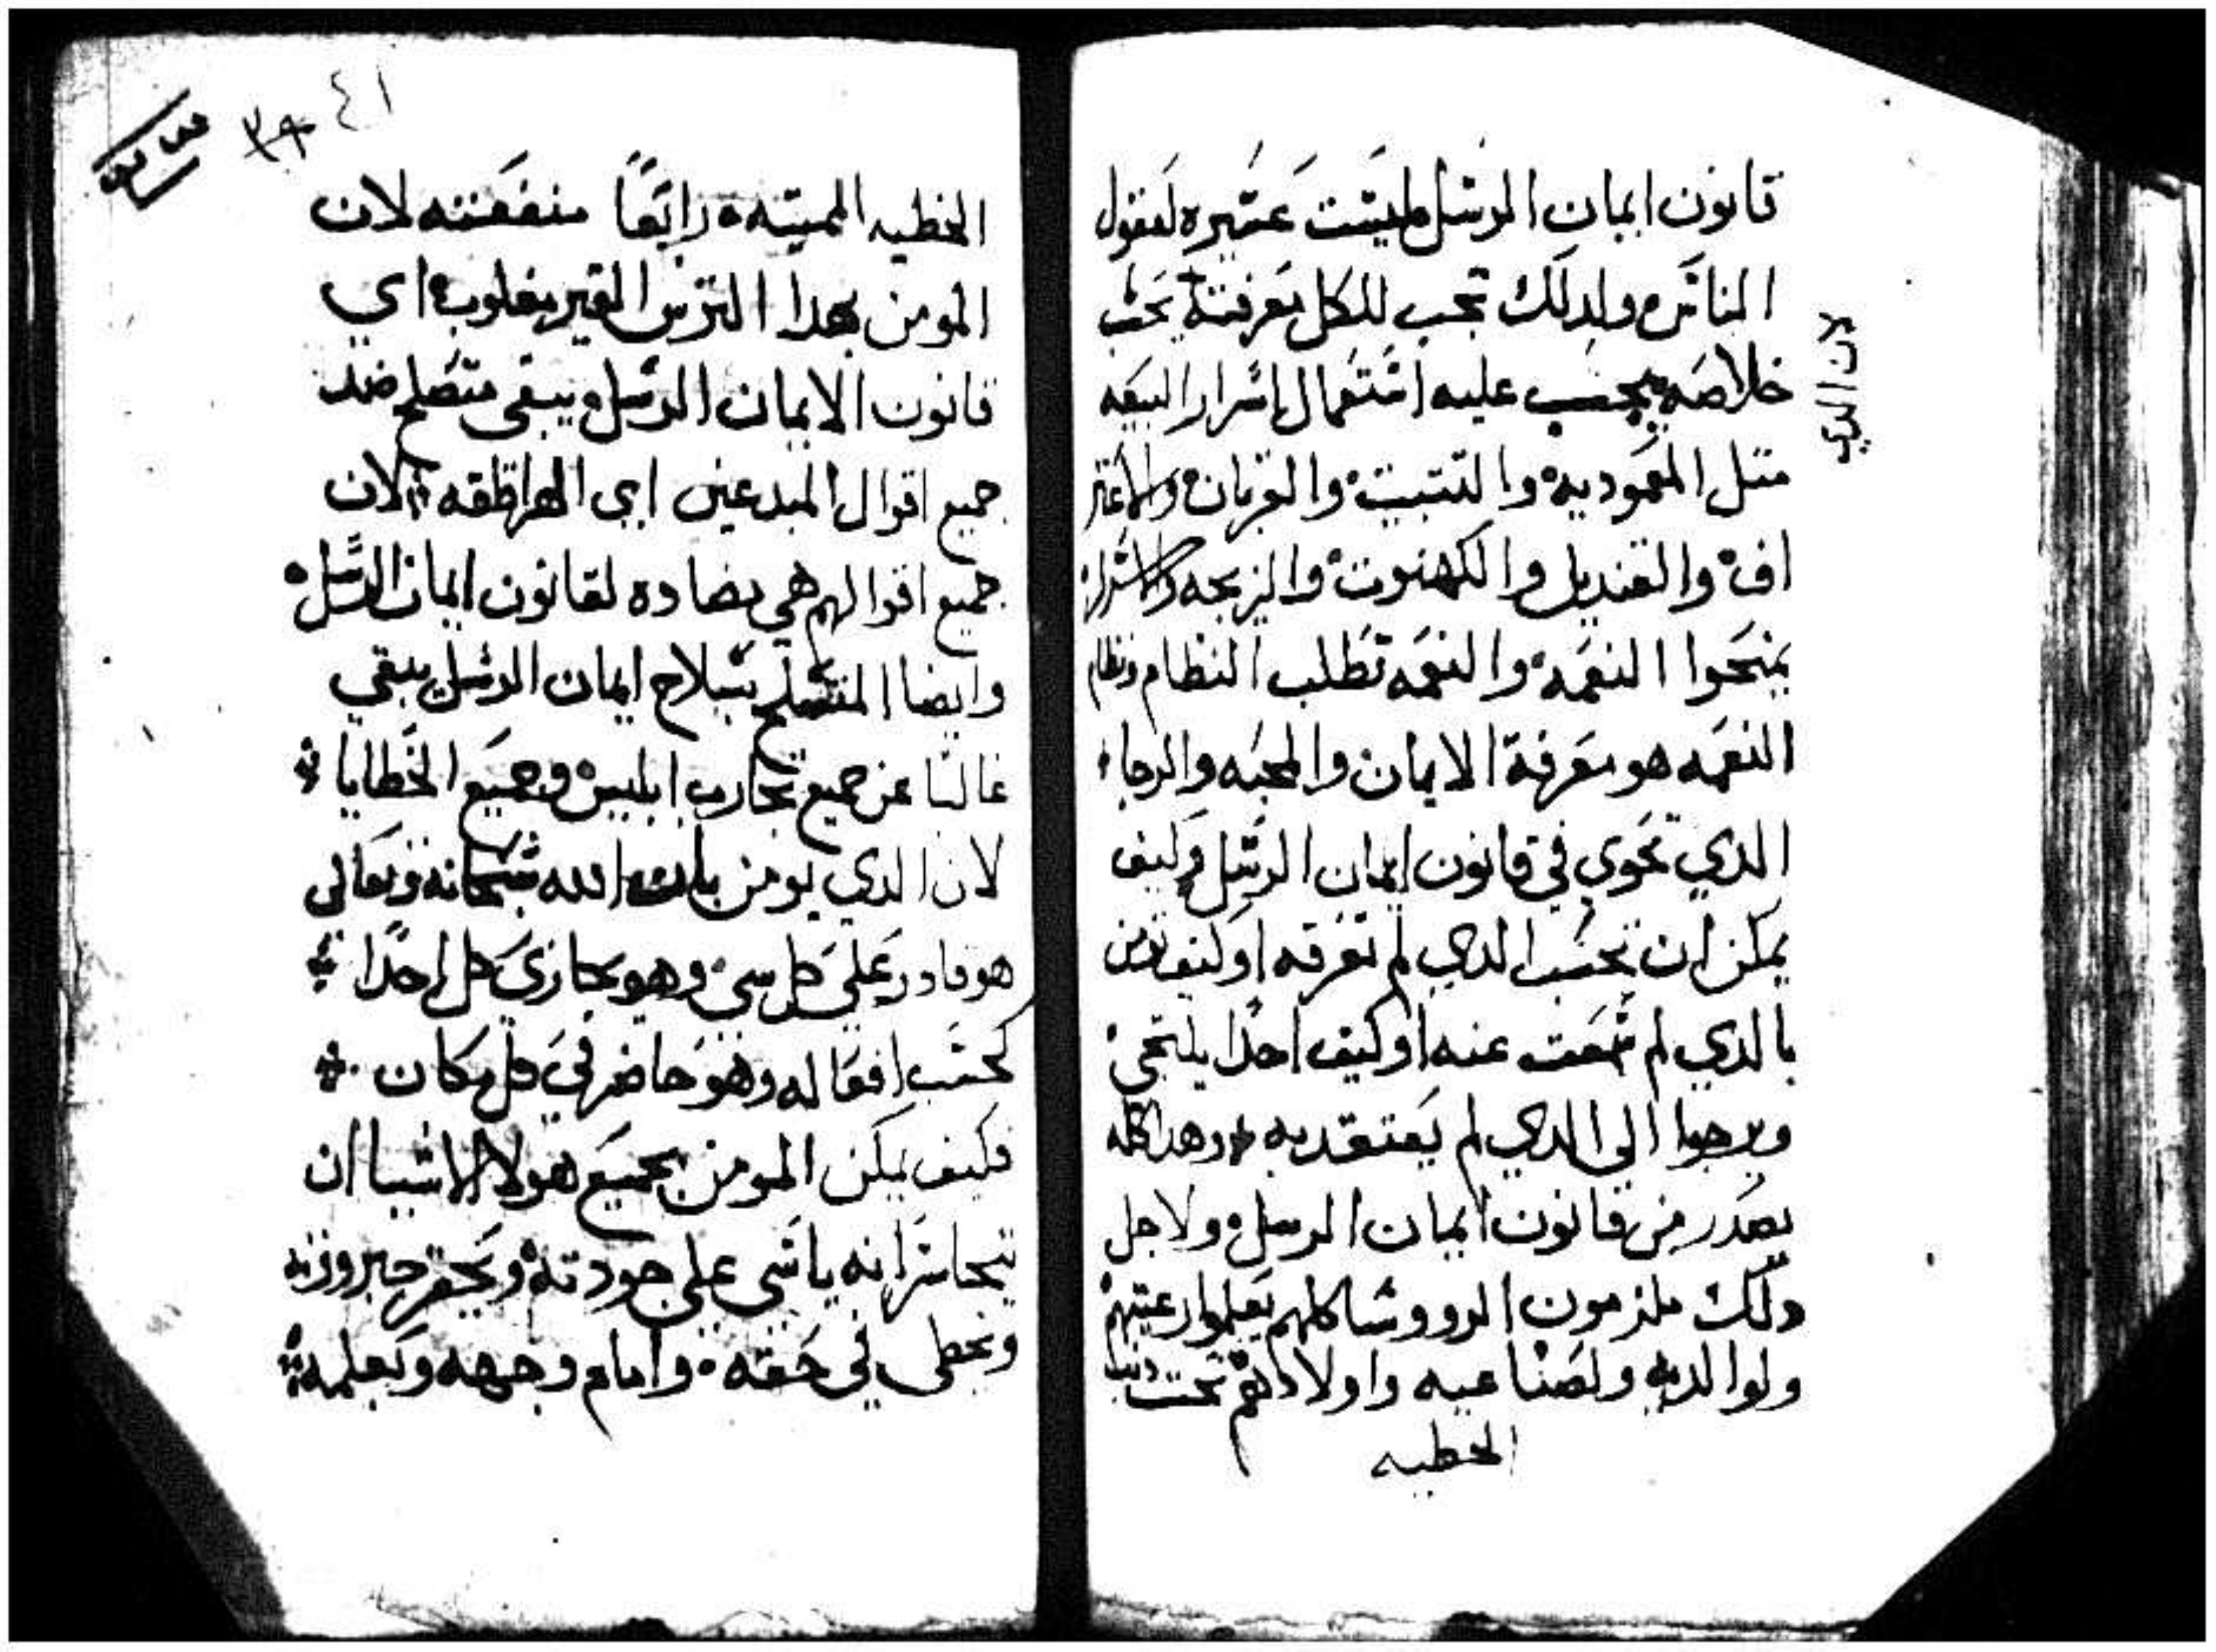 قانون ايمان الرسل ليست عسره لعقول
الناس ولدلك تجب للكل معرفته يحب
لان الدي
خلاصه يجب عليه استعمال اسرار البيعه
متل المعموديه والتتبيت والقربان والاعتر
اف والقنديل والكهنوت والزيجه والاسرار
يمنحوا النعمه والنعمه تطلب النظام ونظام
النعمه هو معرفة الايمان والمحبه والرجاء
الدي تحوي في قانون ايمان الرسل وكيف
يمكن ان تحب الدي لم تعرفه او كيف تومن
بالدي لم سمعت عنه او كيف احدا يلتجي
ويرجوا الي الدي لم يعتقد به وهدا كله
يصدر من قانون ايمان الرسل ولاجل
دلك ملزمون الرووسا كلهم يعلموا رعيتهم
ولوالديه ولصناعيه واولادهم تحت
الخطيه
٣٩ ٤١
الخطيه المميته رابعا منفعته لان
المومن بهدا الترس الغير مغلوب اي
قانون الايمان الرسل ويبقي متصلح ضد
جميع اقوال المبدعين اي الهراطقه لان
جميع اقوالهم هي مضاده لقانون ايمان الرسل
وايضا المتسلح بسلاح ايمان الرسل يبقي
غالبا عن جميع تجارب ابليس وجميع الخطايا
لان الدي يومن بان الله سبحانه وتعالي
هو قادر علي كل سي وهو يجازي كل احدا
كحسب افعاله وهو حاضر في كل مكان
فكيف يمكن المومن بجميع هولا الاشيا ان
يتجاسر انه ياسي علي جودته ويحقر جبروته
ويخطي في حقه وامام وجهه وبعلمه